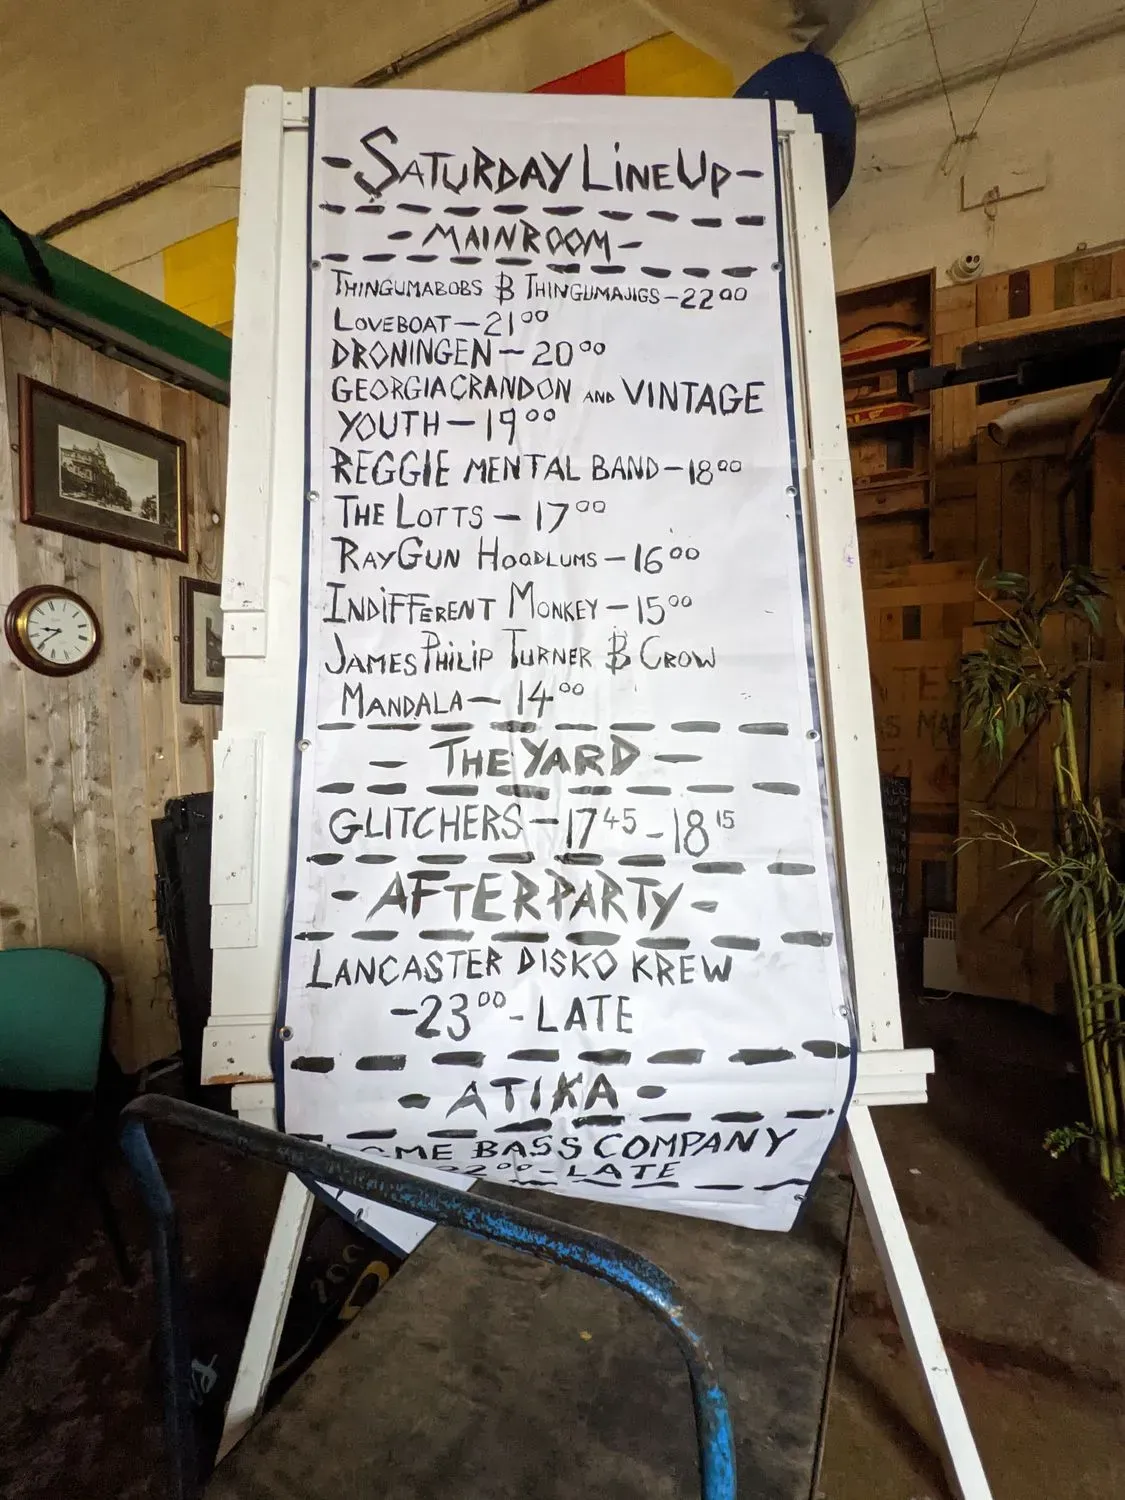 - SATURDAY LINEUP -
- MAINROOM -
THINGUMABOBS & THINGUMAJIGS - 22⁰⁰
LOVEBOAT - 21⁰⁰
DRONINGEN - 20⁰⁰
GEORGIACRANDON AND VINTAGE
YOUTH - 19⁰⁰
REGGIE MENTAL BAND - 18⁰⁰
THE LOTTS - 17⁰⁰
RAYGUN HOODLUMS - 16⁰⁰
INDIFFERENT MONKEY - 15⁰⁰
JAMES PHILIP TURNER & CROW
MANDALA - 14⁰⁰
- THE YARD -
GLITCHERS - 17⁴⁵ - 18¹⁵
- AFTERPARTY -
LANCASTER DISKO KREW
- 23⁰⁰ - LATE
- ATIKA -
HOME BASS COMPANY
22⁰⁰ - LATE